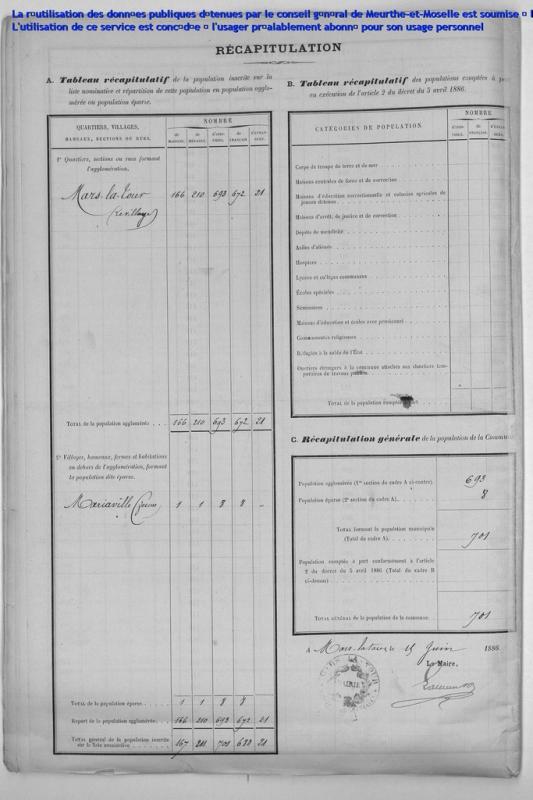 La r¤utilisation des donn¤es publiques d¤tenues par le conseil g¤n¤ral de Meurthe-et-Moselle est soumise ¤ l
L'utilisation de ce service est conc¤d¤e ¤ l'usager pr¤alablement abonn¤ pour son usage personnel
RÉCAPITULATION
A. Tableau récapitulatif de la population inscrite sur la
liste nominative et répartition de cette population en population agglo-
mérée ou population éparse.
QUARTIERS, VILLAGES,
HAMEAUX, SECTIONS OU RUES.
NOMBRE
de MAISONS. de MÉNAGES. d'INDIVIDUS. de FRANÇAIS d'ÉTRANGERS.
1° Quartiers, sections ou rues formant
l'agglomération.
Mars-la-Tour 166 210 693 672 21
(le village)
TOTAL de la population agglomérée 166 210 693 672 21
2° Villages, hameaux, fermes et habitations
en dehors de l'agglomération, formant
la population dite éparse.
Mariaville (ferme) 1 1 8 8 -
TOTAL de la population éparse 1 1 8 8
Report de la population agglomérée 166 210 693 672 21
TOTAL général de la population inscrite
sur la liste nominative 167 211 701 680 21
B. Tableau récapitulatif des populations comptées à
en exécution de l'article 2 du décret du 5 avril 1886.
CATÉGORIES DE POPULATION.
NOMBRE
de FRANÇAIS.
Corps de troupe de terre et de mer
Maisons centrales de force et de correction
Maisons d'éducation correctionnelle et colonies agricoles de
jeunes détenus
Maisons d'arrêt, de justice et de correction
Dépôts de mendicité
Asiles d'aliénés
Hospices
Lycées et collèges communaux
Écoles spéciales
Séminaires
Maisons d'éducation et écoles avec pensionnat
Communautés religieuses
Réfugiés à la solde de l'État
Ouvriers étrangers à la commune attachés aux chantiers tem-
poraires de travaux publics
TOTAL de la population comptée à part
C. Récapitulation générale de la population de la Commune
Population agglomérée (1re section du cadre A ci-contre). 693
Population éparse (2e section du cadre A). 8
TOTAL formant la population municipale
(Total du cadre A). 701
Population comptée à part conformément à l'article
2 du décret du 5 avril 1886 (Total du cadre B
ci-dessus)
TOTAL GÉNÉRAL de la population de la commune. 701
A Mars-la-Tour le 15 Juin 1886.
Le Maire,
MARS LA TOUR
MAIRIE